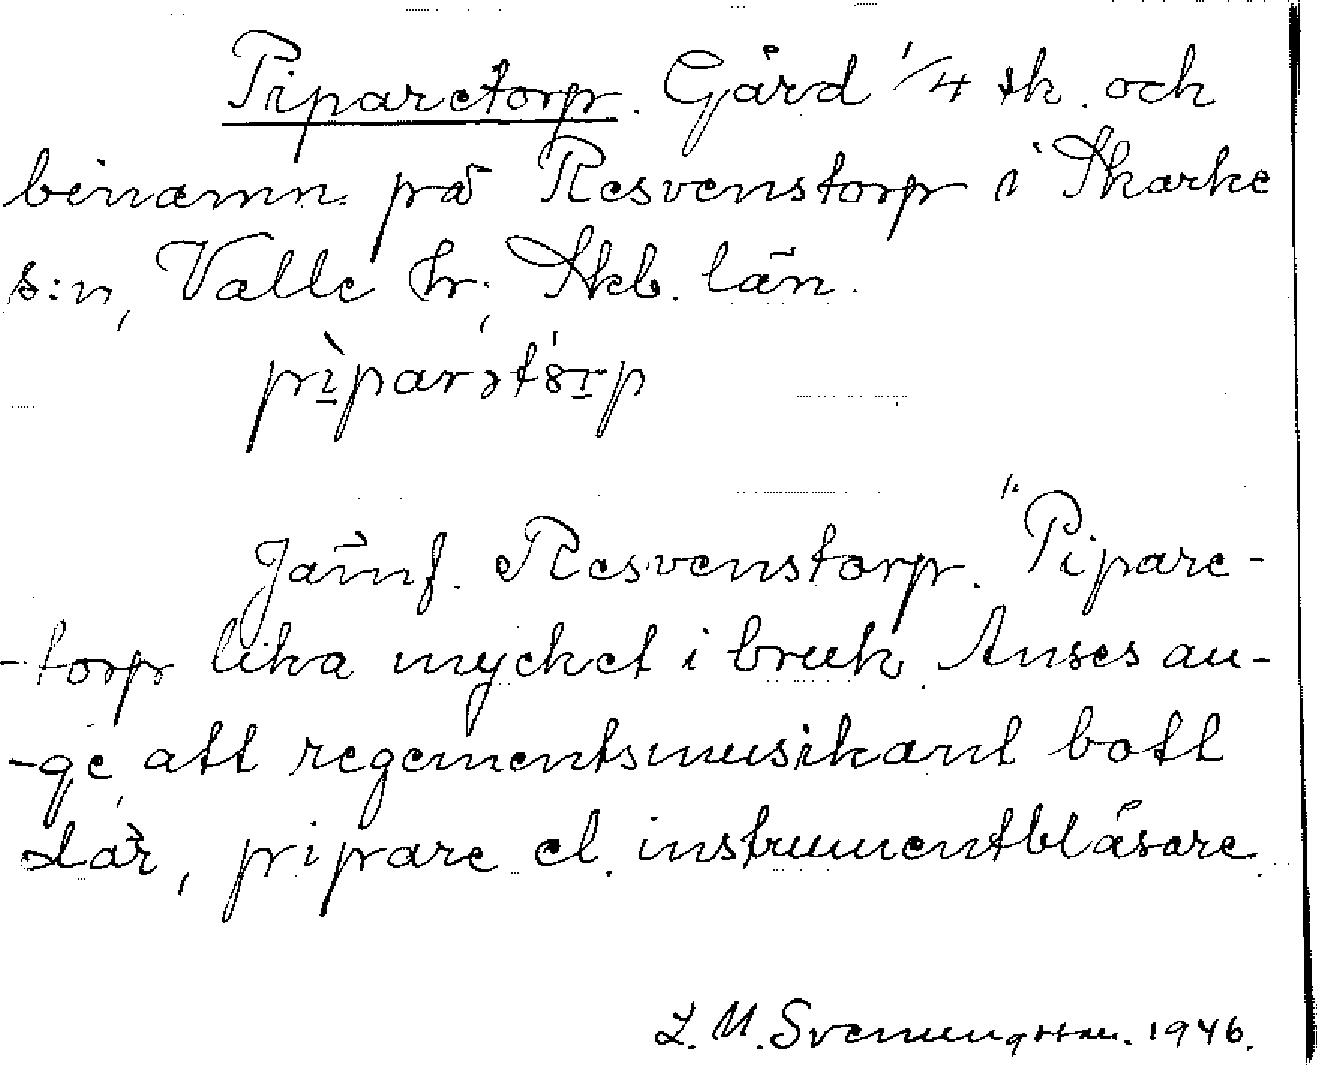 Piparetorp. Gård 1/4 sk. och
binamn. på Resvenstorp i Skarke
s:n, Valle hr, Skb. län.
pìparət8rp
Jämf. Resvenstorp. "Pipare-
-torp lika mycket i bruk. Anses an-
-ge, att regementsmusikant bott
där, pipare el. instrumentblåsare.
L. M. Svenungsson. 1946.